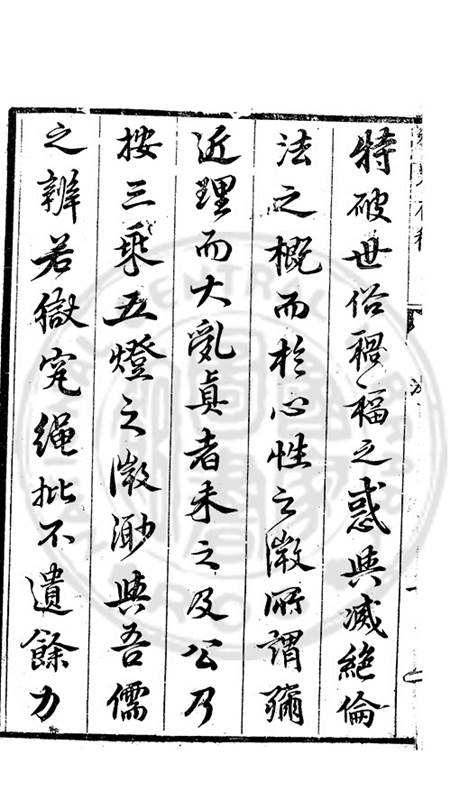 特破世俗禍福之惑與滅絕倫
法之概而於心性之微所謂彌
近理而大亂真者未之及公乃
按三乘五燈之微渺與吾儒
之辨若嶽究繩批不遺餘力